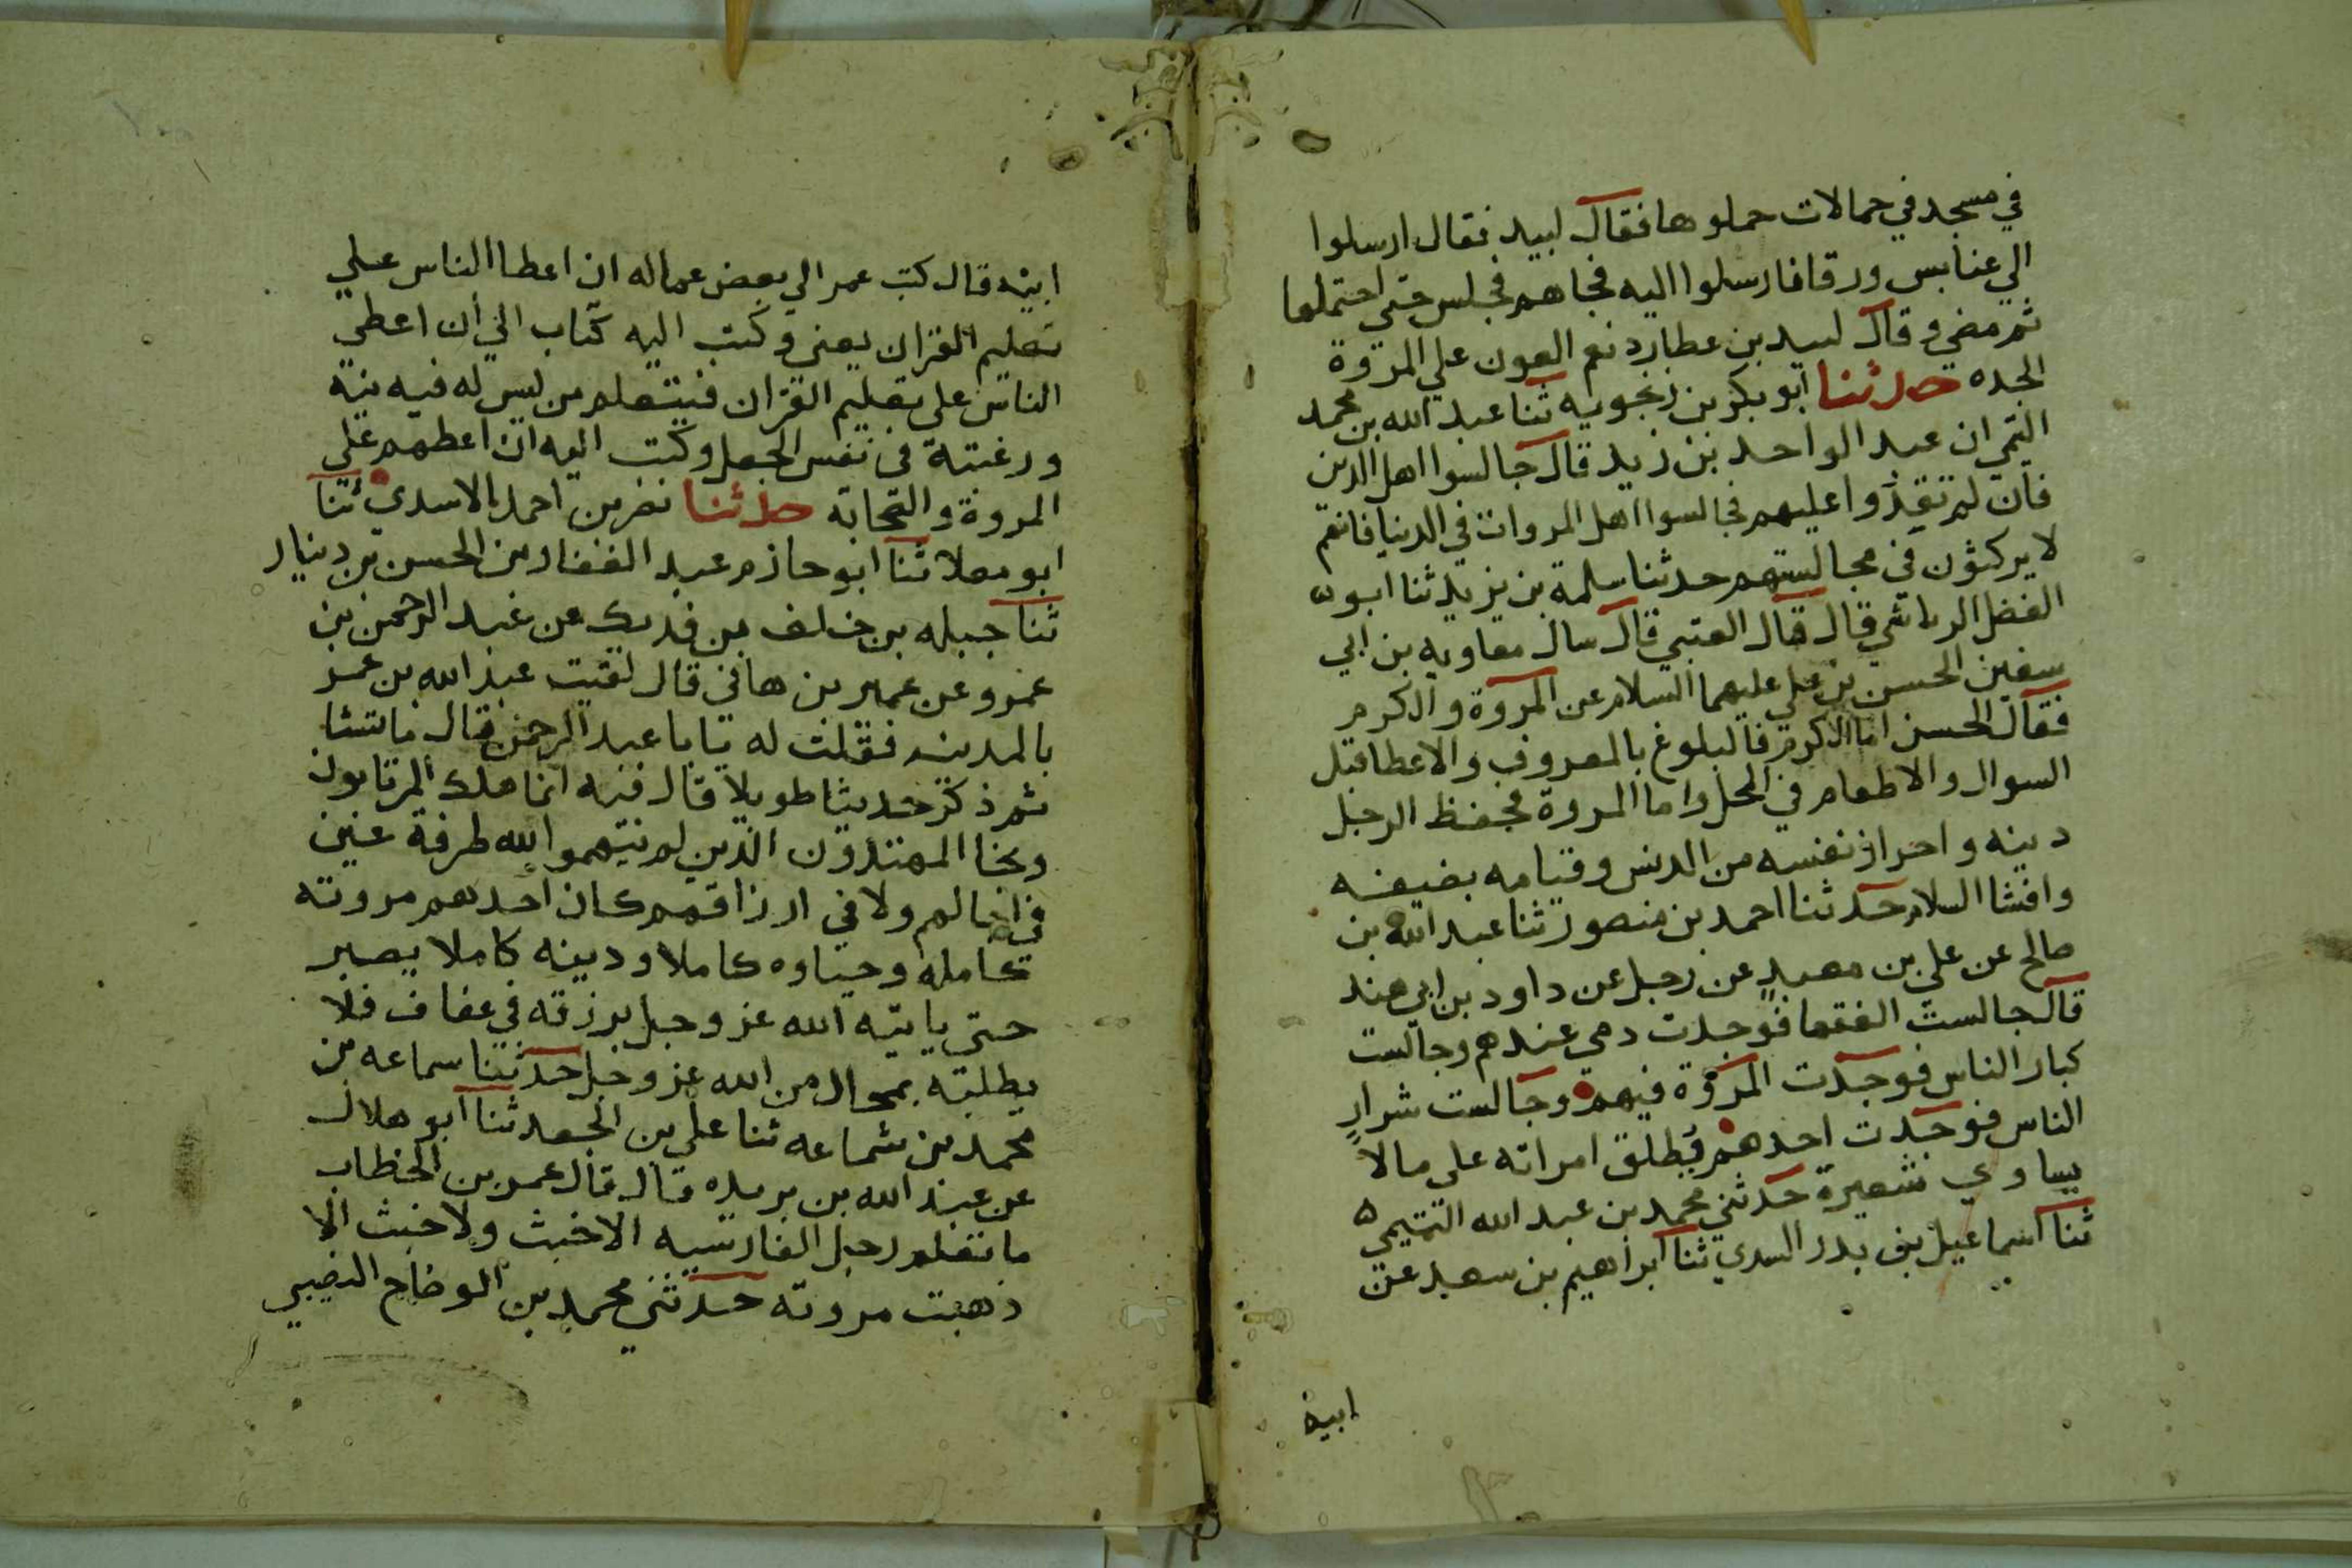 في مسجد في حمالات حملوها فقال لبيد فقال ارسلوا
الي عتابس ورقا فارسلوا اليه فجاهم فجلس حتى احتملها
ثم مضي وقال لبيد بن عطارد نعم العون علي المروة
الجده حدثنا ابو بكر بن زنجويه ثنا عبد الله بن محمد
التيمي ان عبد الواحد بن زيد قال جالسوا اهل الدين
فان لم تقدروا عليهم فجالسوا اهل المروات في الدنيا فانهم
لا يرفثون في مجالستهم حدثنا سلمة بن يزيد ثنا ابو
الفضل الرياشي قال قال العتبي قال سال معاويه بن ابي
سفين الحسن بن علي عليهما السلام عن المروة والكرم
فقال الحسن اما الكرم فالبلوغ بالمعروف والاعطا قبل
السوال والاطعام في المحل واما المروة فحفظ الرجل
دينه واحراز نفسه من الدنس وقيامه بضيفه
وافشا السلام حدثنا احمد بن منصور ثنا عبد الله بن
صالح عن علي بن معبد عن رجل عن داود بن ابي هند
قال جالست الفقها فوجدت دمي عندهم وجالست
كبار الناس فوجدت المروة فيهم وجالست شرار
الناس فوجدت احدهم يطلق امراته على مالا
يساوي شعيرة حدثني محمد بن عبد الله التميمي
ثنا اسماعيل بن بدر السدي ثنا ابراهيم بن سعد عن
ابيه
ابيه قال كتب عمر الي بعض عماله ان اعطا الناس علي
تعليم القران يعني وكتب اليه كتاب الي ان اعطي
الناس على تعليم القران فيتعلم من ليس له فيه نية
ورغبته في نفس الجعل وكتب اليه ان اعطهم علي
المروة والصحابة حدثنا نضر بن احمد الاسدي ثنا
ابو معلا ثنا ابو حازم عبد الغفار بن الحسن بن دينار
ثنا جبله بن خلف بن فديك عن عبد الرحمن بن
عمرو عن عمير بن هاني قال لقيت عبد الله بن عمر
بالمدينه فقلت له يا با عبد الرحمن قال ما تشا
ثم ذكر حديثا طويلا قال فيه انما هلك المرتابون
ونجا المهتدون الذين لم يتهموا الله طرفة عين
في اجالهم ولا في ارزاقهم كان احدهم مروته
كامله وحياوه كاملا ودينه كاملا يصبر
حتى ياتيه الله عز وجل برزقه في عفاف فلا
يطلبه بمحال من الله عز وجل حدثنا سماعه بن
محمد بن سماعه ثنا علي بن الجعد ثنا ابو هلال
عن عبد الله بن بريده قال قال عمر بن الخطاب
ما تعلم رجل الفارسيه الا خبث ولا خبث الا
ذهبت مروته حدثني محمد بن الوضاح النصيبي